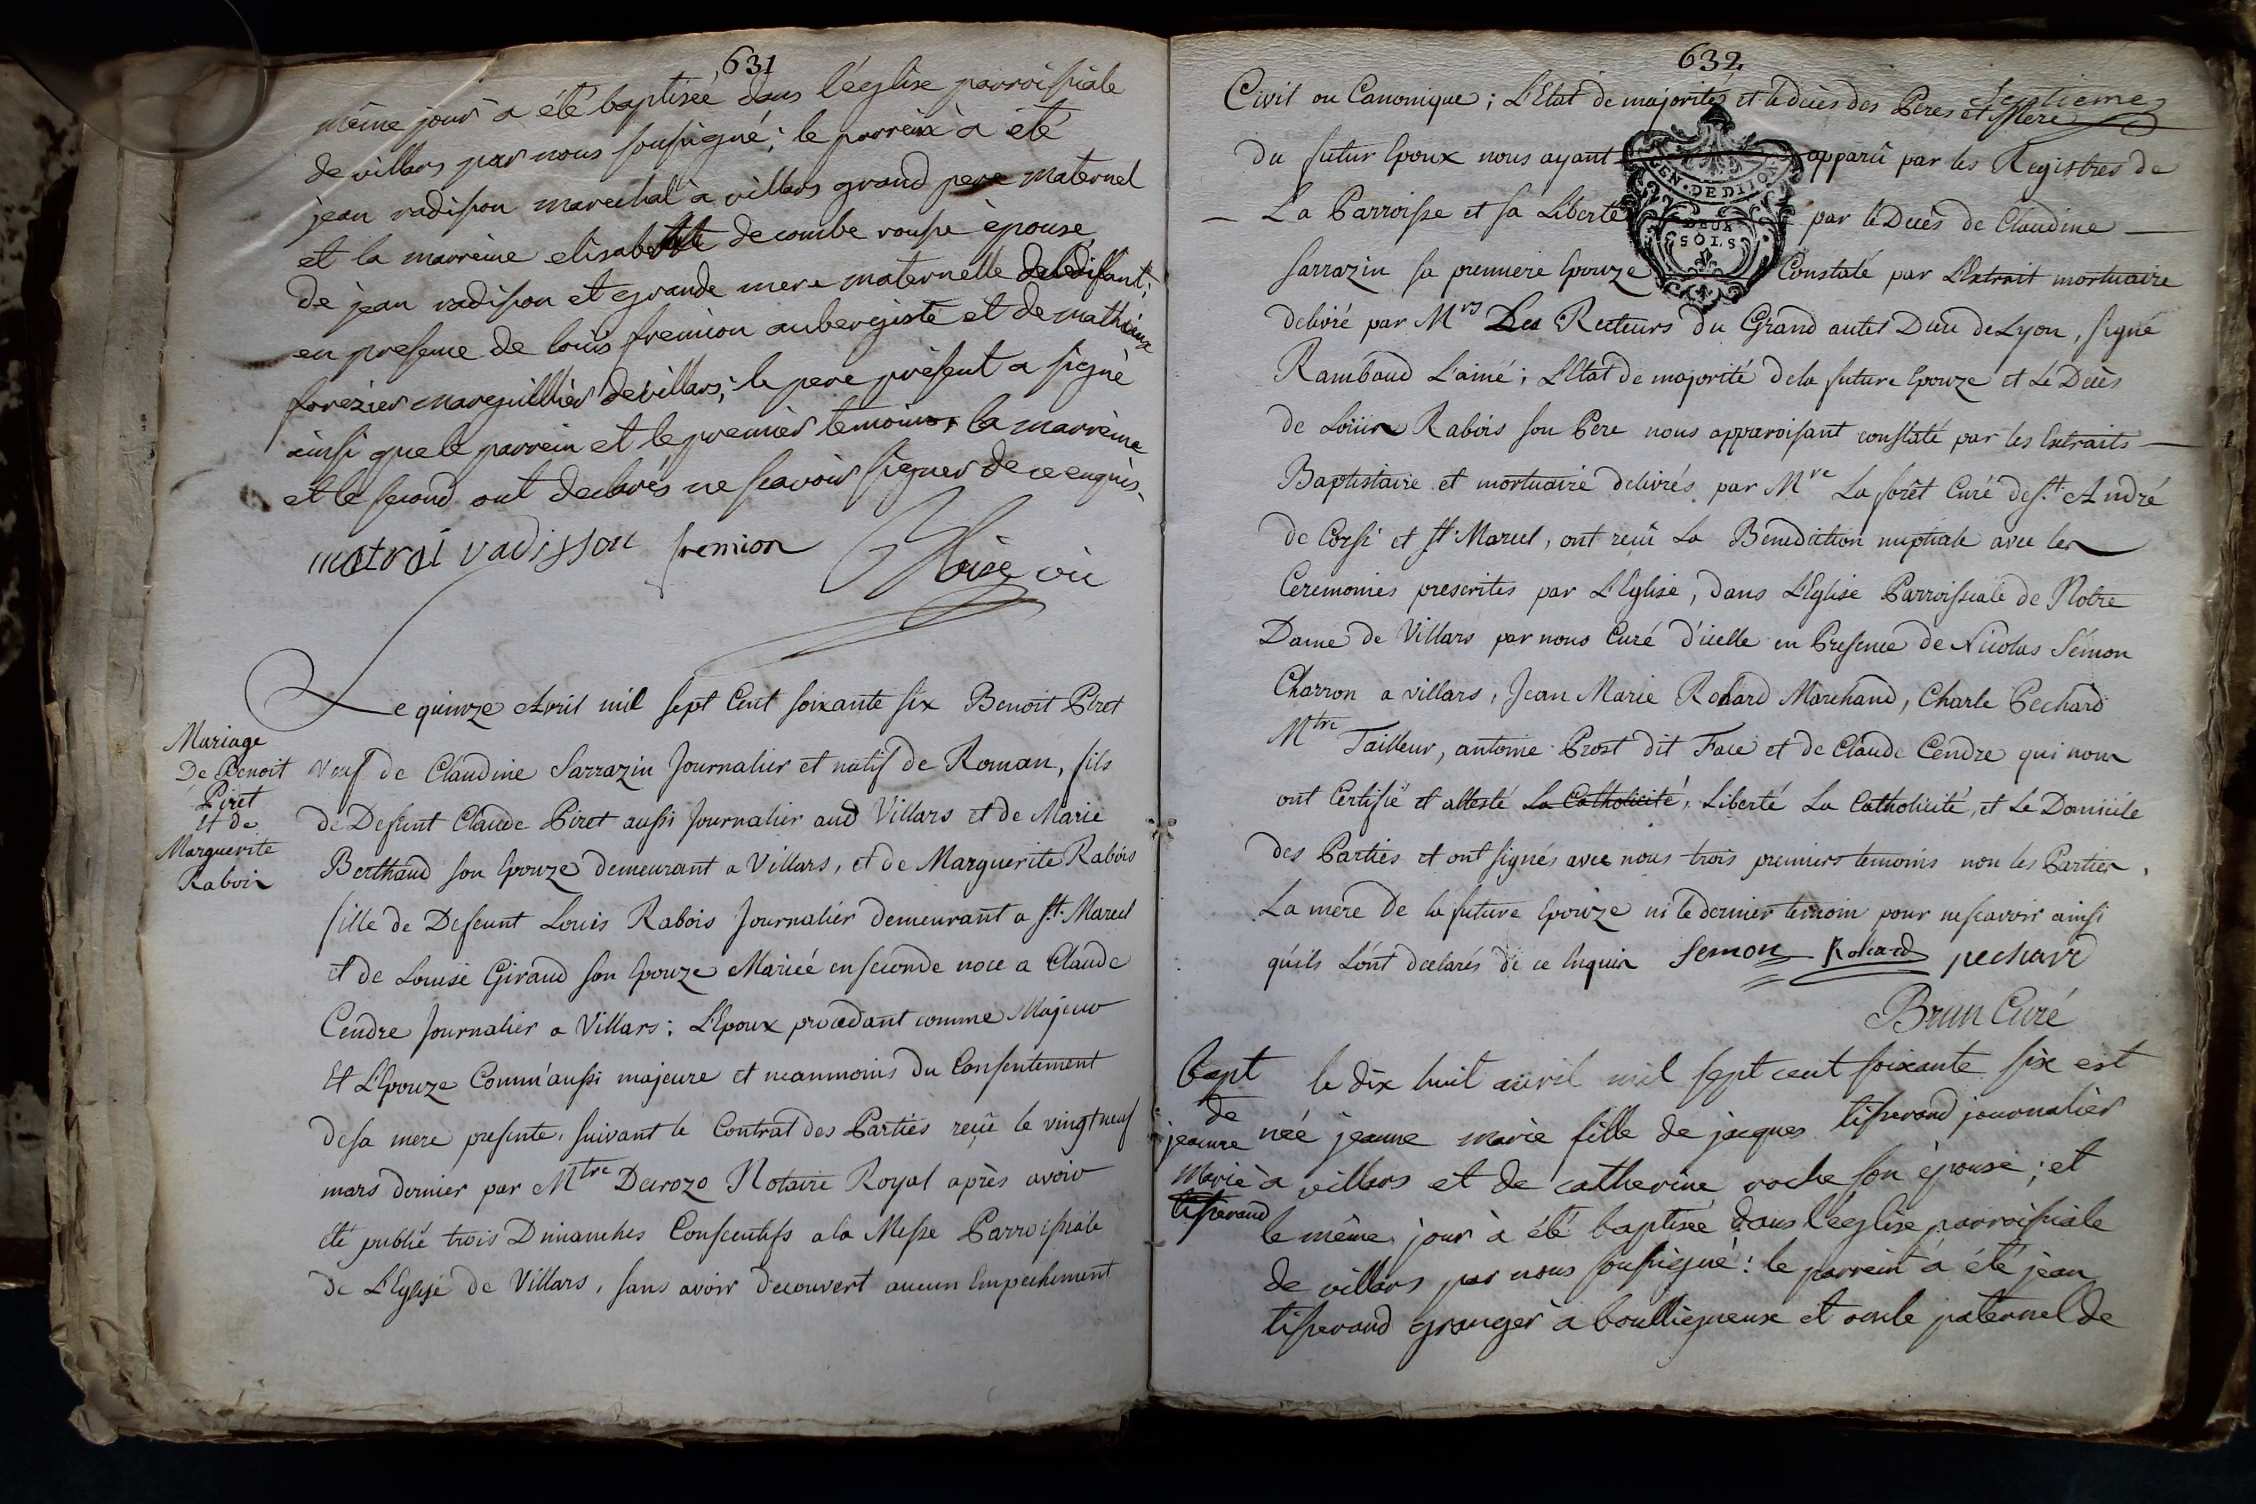 631
même jour a été baptisée dans l'eglise parroissiale
de villars par nous soussigné; le parrein a été
jean radisson marechal a villars grand pere maternel
et la marreine elisabette decombe rousse épouse
de jean radisson et grande mere maternelle
en presence de loüis fremion aubergiste et de mathieu
forézier marguillier de villars; le pere présent a signé
ainsi que le parrein et le premier temoins, la marreine
et le second ont declarés ne scavoir signer de ce enquis.
matrai radisson fremion
Le quinze Avril mil sept Cent soixante six Benoit Piret
Mariage
De Benoit
Piret
et de
Marguerite
Rabois
veuf de Claudine Sarrazin Journalier et natif de Roman, fils
de Defunt Claude Piret aussi Journalier aud Villars et de Marie
Berthaud son Epouze demeurant a Villars, et de Marguerite Rabois
fille de Defeunt Louis Rabois Journalier demeurant a St. Marcel
et de Louise Giraud son Epouze Mariée en seconde noce a Claude
Cendre Journalier a Villars; L'Epoux procedant comme Majeur
Et L'Epouze Comm'aussi majeure et neanmoins du Consentement
de sa mere presente, suivant le Contrat des Parties reçû le vingt neuf
mars dernier par Mtre Durozo Notaire Royal après avoir
été publié trois Dimanches Consecutifs a la Messe Parroissiale
de L'Eglise de Villars, sans avoir decouvert aucun Empechement
632
Septieme
Civil ou Canonique; L'Etat de majorités et le decès des Peres et Mere
du futur Epoux nous ayant apparû par les Registres de
La Parroisse et sa Liberté par le Decès de Claudine
EN. DE DIJON
DEUX
SOLS
Sarrazin sa premiere Epouze Constaté par L'Extrait mortuaire
delivré par Mrs Les Recteurs du Grand autel Dieu de Lyon, signé
Rambaud L'ainé; L'Etat de majorité de la future Epouze et Le Decès
de Loüis Rabois son Pere nous apparoisant constaté par les Extraits
Baptistaire et mortuaire delivrés par Mre La forêt Curé de St. André
de Corsi et St. Marcel, ont reçû La Benediction nuptiale avec les
Ceremonies prescrites par L'Eglise, dans L'Eglise Parroissiale de Notre
Dame de Villars par nous Curé d'icelle en Presence de Nicolas Sémon
Charron a villars, Jean Marie Renard Marchand, Charle Pechard
Mtre Tailleur, antoine Prost dit Face et de Claude Cendre qui nous
ont Certifié et attesté La Catholicité, Liberté La Catholicité, et Le Domicile
des Parties et ont signés avec nous trois premiers temoins non les Parties,
La mere de la future Epouze ni le dernier temoin pour ne scavoir ainsi
qu'ils L'ont declarés de ce Enquis Semon Renard pechard
Brun Curé
Bapt
de
jeanne
Marie
tisserand
le dix huit auril mil sept cent soixante six est
née jeanne marie fille de jacques tisserand journalier
à villars et de catherine roche son épouse; et
le même jour à été baptisée dans l'église parroissiale
de villars par nous soussigné: le parrein a été jean
tisserand granger à boulligneux et oncle paternel de